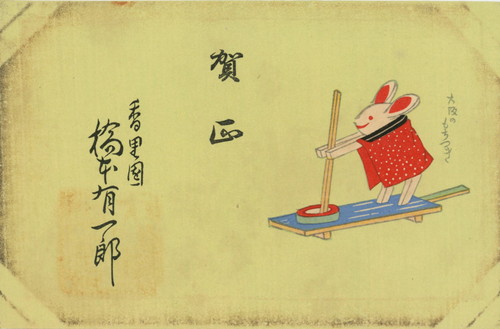 賀正
大阪のもちつき
香里園
橋本有一郎